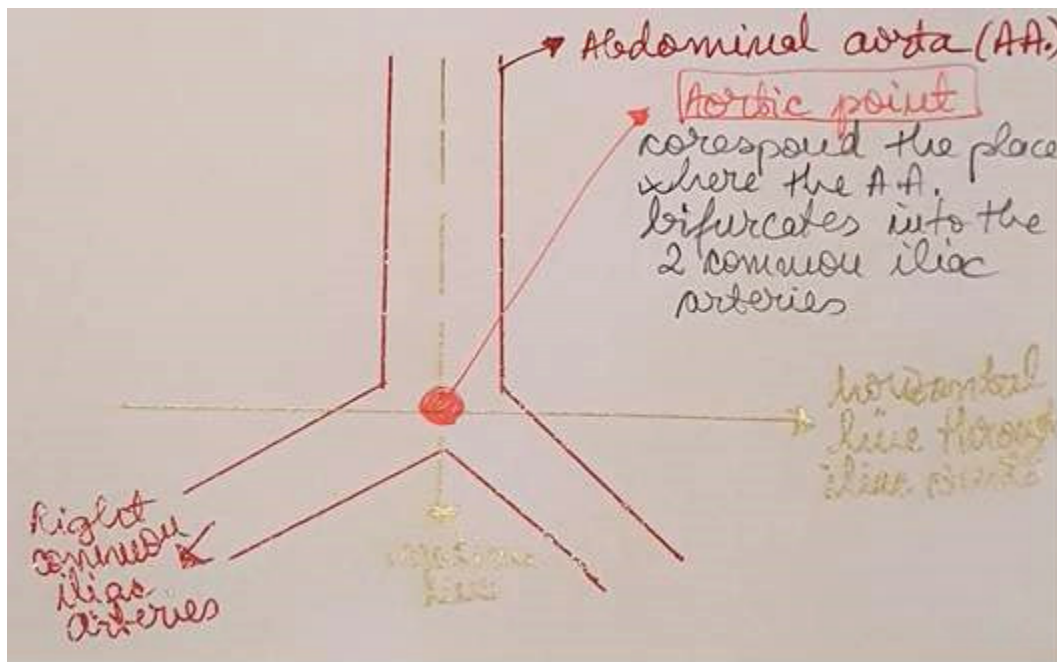 Abdominal aorta (AA.)
Aortic point
corespond the place
where the A.A.
bifurcates into the
2 common iliac
arteries
horizontal
line through
iliac
Right
common
iliac
arteries
line